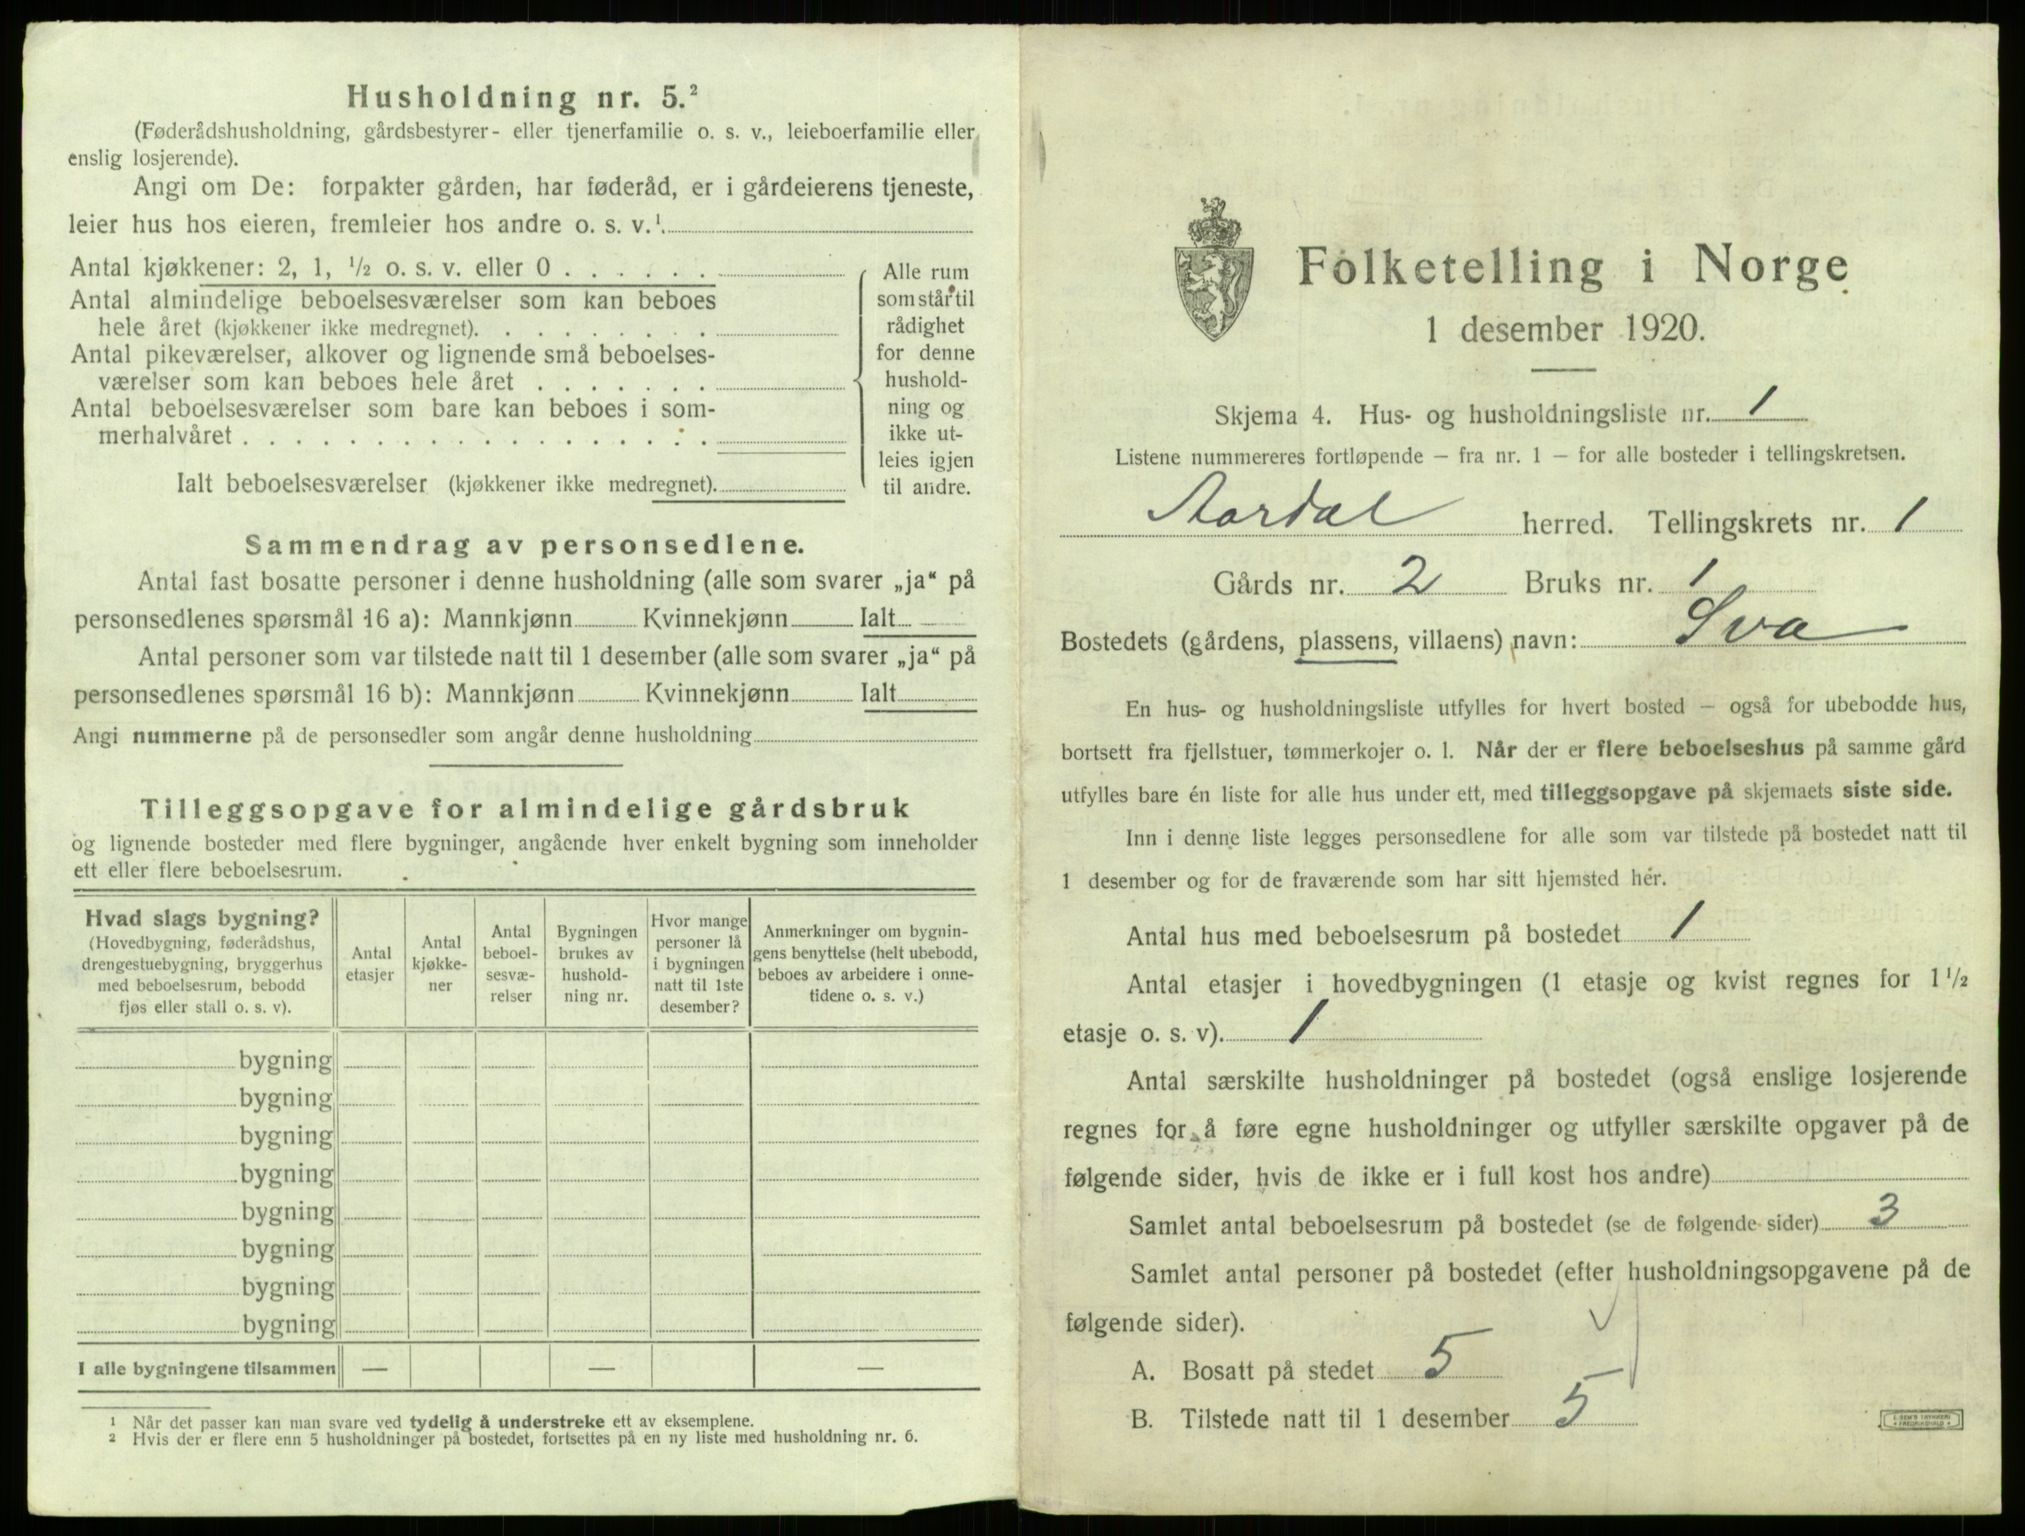 Husholdning nr. 5.²
(Føderådshusholdning, gårdsbestyrer- eller tjenerfamilie o. s. v., leieboerfamilie eller
enslig losjerende).
Angi om De: forpakter gården, har føderåd, er i gårdeierens tjeneste,
leier hus hos eieren, fremleier hos andre o. s. v.¹.
Antal kjøkkener: 2, 1, ½ o. s. v. eller 0 . . . . . .
Antal almindelige beboelsesværelser som kan beboes
hele året (kjøkkener ikke medregnet). . . . . . . . .
Antal pikeværelser, alkover og lignende små beboelses-
værelser som kan beboes hele året . . . . . . .
Antal beboelsesværelser som bare kan beboes i som-
merhalvåret . . . . . . . . . . . . . . . . . .
Ialt beboelsesværelser (kjøkkener ikke medregnet).
Alle rum
som står til
rådighet
for denne
hushold-
ning og
ikke ut-
leies igjen
til andre.
Sammendrag av personsedlene.
Antal fast bosatte personer i denne husholdning (alle som svarer „ja“ på
personsedlenes spørsmål 16 a): Mannkjønn Kvinnekjønn Ialt
Antal personer som var tilstede natt til 1 desember (alle som svarer „ja“ på
personsedlenes spørsmål 16 b): Mannkjønn Kvinnekjønn Ialt
Angi nummerne på de personsedler som angår denne husholdning
Tilleggsopgave for almindelige gårdsbruk
og lignende bosteder med flere bygninger, angående hver enkelt bygning som inneholder
ett eller flere beboelsesrum.
Hvad slags bygning?
(Hovedbygning, føderådshus,
drengestuebygning, bryggerhus
med beboelsesrum, bebodd
fjøs eller stall o. s. v).
Antal
etasjer
Antal
kjøkke-
ner
Antal
beboel-
sesvæ-
relser
Bygningen
brukes av
hushold-
ning nr.
Hvor mange
personer lå
i bygningen
natt til 1ste
desember?
Anmerkninger om bygnin-
gens benyttelse (helt ubebodd,
beboes av arbeidere i onne-
tidene o. s. v.)
bygning
bygning
bygning
bygning
bygning
bygning
bygning
bygning
I alle bygningene tilsammen — — —
¹ Når det passer kan man svare ved tydelig å understreke ett av eksemplene.
² Hvis der er flere enn 5 husholdninger på bostedet, fortsettes på en ny liste med husholdning nr. 6.
Folketelling i Norge
1 desember 1920.
Skjema 4. Hus- og husholdningsliste nr. 1
Listene nummereres fortløpende – fra nr. 1 – for alle bosteder i tellingskretsen.
Aardal herred. Tellingskrets nr. 1
Gårds nr. 2 Bruks nr. 1
Bostedets (gårdens, plassens, villaens) navn: Sva
En hus- og husholdningsliste utfylles for hvert bosted – også for ubebodde hus,
bortsett fra fjellstuer, tømmerkojer o. l. Når der er flere beboelseshus på samme gård
utfylles bare én liste for alle hus under ett, med tilleggsopgave på skjemaets siste side.
Inn i denne liste legges personsedlene for alle som var tilstede på bostedet natt til
1 desember og for de fraværende som har sitt hjemsted her.
Antal hus med beboelsesrum på bostedet 1
Antal etasjer i hovedbygningen (1 etasje og kvist regnes for 1 ½
etasje o. s. v). 1
Antal særskilte husholdninger på bostedet (også enslige losjerende
regnes for å føre egne husholdninger og utfyller særskilte opgaver på de
følgende sider, hvis de ikke er i full kost hos andre)
Samlet antal beboelsesrum på bostedet (se de følgende sider) 3
Samlet antal personer på bostedet (efter husholdningsopgavene på de
følgende sider).
A. Bosatt på stedet 5
B. Tilstede natt til 1 desember 5